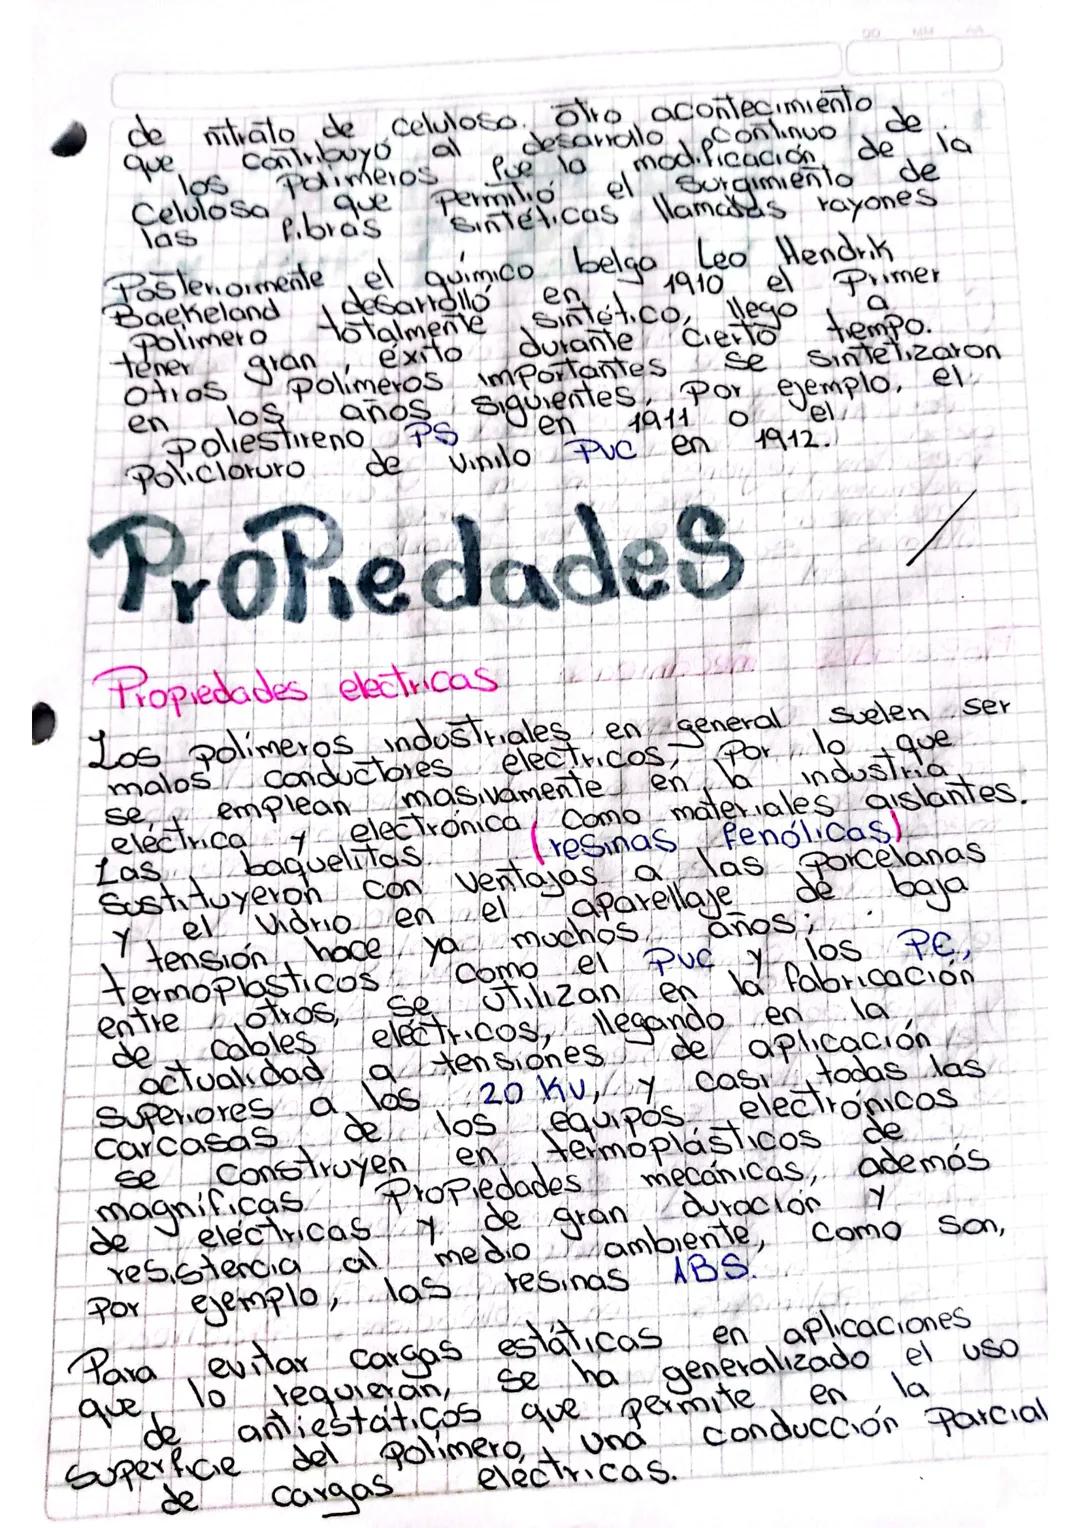 DD MM AA
de nitrato de celulosa. Otro acontecimiento
que contribuyó al desarrollo continuo de
los Polimeros fue la modificación de la
Celulosa que Permitió el surgimiento de
las fibras sintéticas llamadas rayones
Posteriormente el químico belga Leo Hendrik
Baekeland desarrolló en 1910 el Primer
Polimero totalmente sintético, llego a
tener gran éxito durante cierto tiempo.
otros Polímeros importantes se sintetizaron
en los años siguientes, Por ejemplo, el
Poliestireno PS en 1911 o el
Policloruro de vinilo PVC en 1912.
Propiedades
Propiedades electricas
Los polímeros industriales en general suelen ser
malos conductores electricos, Por lo que
se emplean masivamente en la industria
eléctrica y electrónica como materiales aislantes.
Las baquelitas (resinas fenólicas)
sustituyeron con ventajas a las porcelanas
y el vidrio en el aparellaje de baja
tensión hace ya muchos años;
termoplasticos como el PVC y los PE,
entre otros, se utilizan en la fabricación
de cables electricos, llegando en la
actualidad a tensiones de aplicación
superiores a los 20 KV, y casi todas las
carcasas de los equipos electrónicos
se construyen en termoplásticos de
magníficas Propiedades mecánicas, además
de eléctricas y de gran duración y
resistencia al medio ambiente, como son,
Por ejemplo, las resinas ABS.
Para evitar cargas estáticas en aplicaciones
que lo requieran, se ha generalizado el uso
de antiestáticos que permite en la
superficie del polímero, una conducción Parcial
de cargas eléctricas.